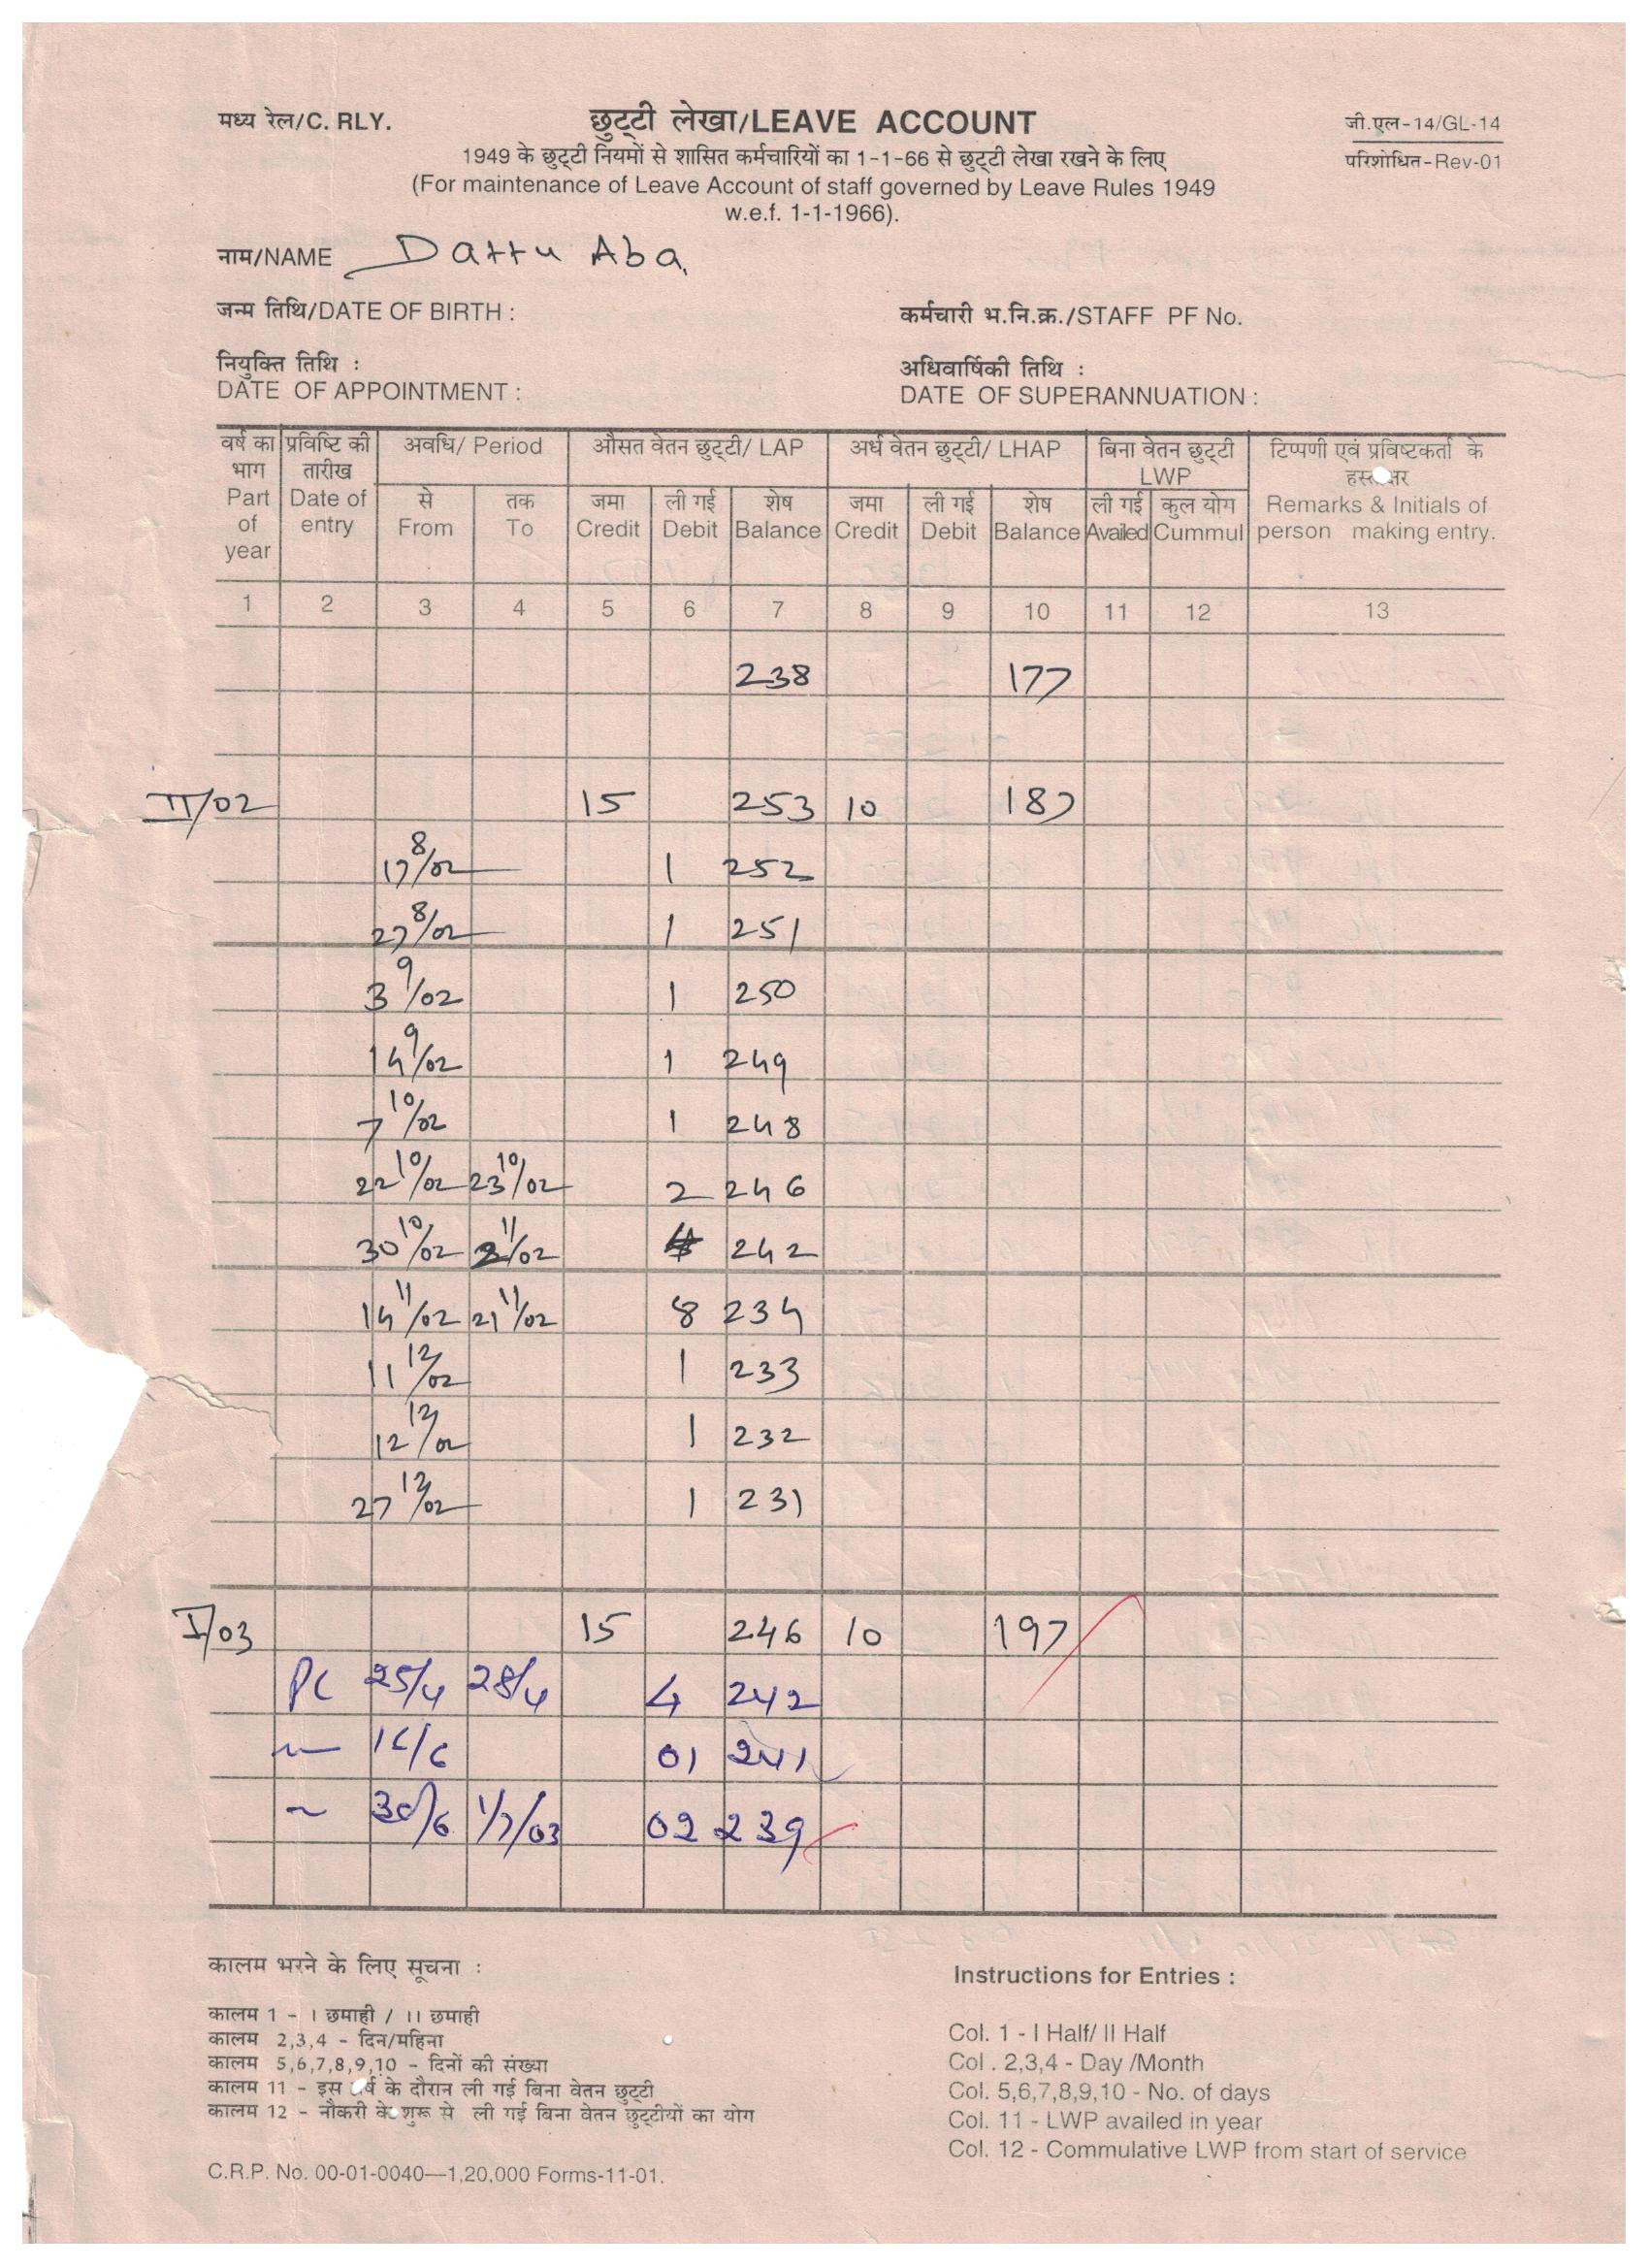 मध्य रेल/C. RLY.
छुट्टी लेखा/LEAVE ACCOUNT
जी.एल-14/GL-14
परिशोधित-Rev-01
1949 के छुट्टी नियमों से शासित कर्मचारियों का 1-1-66 से छुट्टी लेखा रखने के लिए
(For maintenance of Leave Account of staff governed by Leave Rules 1949
w.e.f. 1-1-1966).
नाम/NAME Dattu Aba.
जन्म तिथि/DATE OF BIRTH :
कर्मचारी भ.नि.क्र./STAFF PF No.
नियुक्ति तिथि :
DATE OF APPOINTMENT :
अधिवार्षिकी तिथि :
DATE OF SUPERANNUATION :
वर्ष का भाग Part of year
प्रविष्टि की तारीख Date of entry
अवधि/ Period
से From
तक To
औसत वेतन छुट्टी/ LAP
जमा Credit
ली गई Debit
शेष Balance
अर्ध वेतन छुट्टी/ LHAP
जमा Credit
ली गई Debit
शेष Balance
बिना वेतन छुट्टी LWP
ली गई Availed
कुल योग Cummul
टिप्पणी एवं प्रविष्टकर्ता के
Remarks & Initials of person making entry.
1 2 3 4 5 6 7 8 9 10 11 12 13
238 177
II/02 15 253 10 187
17 8/02 1 252
27 8/02 1 251
3 9/02 1 250
14 9/02 1 249
7 10/02 1 248
22 10/02 23 10/02 2 246
30 10/02 2 11/02 4 242
14 11/02 21 11/02 8 234
11 12/02 1 233
12 12/02 1 232
27 12/02 1 231
I/03 15 246 10 197
PL 25/4 28/4 4 242
16/6 01 241
30/6 1/7/03 02 239
कालम भरने के लिए सूचना :
कालम 1 - I छमाही / II छमाही
कालम 2,3,4 - दिन/महिना
कालम 5,6,7,8,9,10 - दिनों की संख्या
कालम 11 - इस वर्ष के दौरान ली गई बिना वेतन छुट्टी
कालम 12 - नौकरी के शुरू से ली गई बिना वेतन छुट्टीयों का योग
C.R.P. No. 00-01-0040—1,20,000 Forms-11-01.
Instructions for Entries :
Col. 1 - I Half/ II Half
Col . 2,3,4 - Day /Month
Col. 5,6,7,8,9,10 - No. of days
Col. 11 - LWP availed in year
Col. 12 - Commulative LWP from start of service